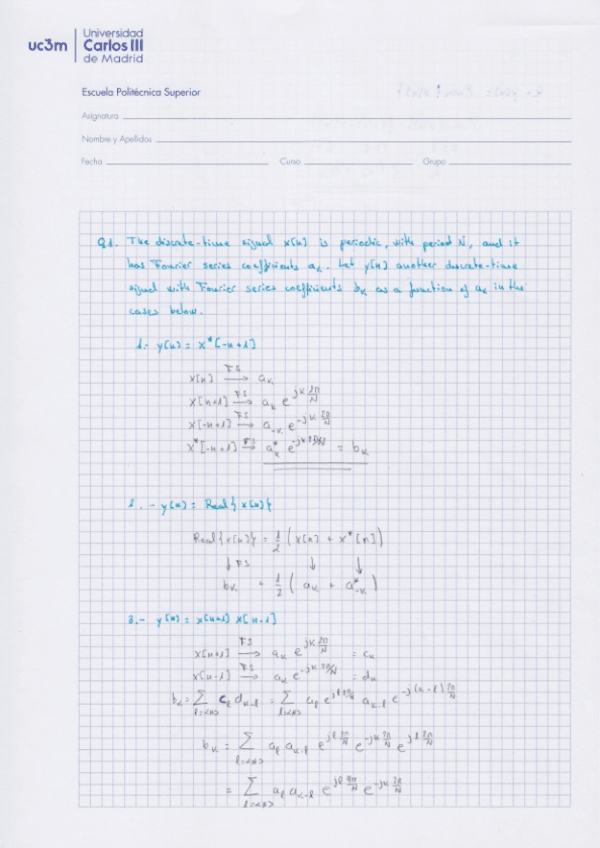 uc3m
Universidad
Carlos III
de Madrid
Escuela Politécnica Superior
Asignatura
Nombre y Apellidos
Fecha Curso Grupo
Q1. The discrete-time signal x[n] is periodic, with period N, and it
has Fourier series coefficients aₖ. Let y[n] another discrete-time
signal with Fourier series coefficients bₖ as a function of aₖ in the
cases below.
1.- y[n] = x*[-n+1]
x[n] FS→ aₖ
x[n+1] FS→ aₖ e^{jk 2π/N}
x[-n+1] FS→ a₋ₖ e^{-jk 2π/N}
x*[-n+1] FS→ aₖ* e^{-jk 2π/N} = bₖ
2.- y[n] = Real{x[n]}
Real{x[n]} = 1/2 (x[n] + x*[n])
↓FS ↓ ↓
bₖ = 1/2 (aₖ + a*₋ₖ)
3.- y[n] = x[n+1] x[n-1]
x[n+1] FS→ aₖ e^{jk 2π/N} = cₖ
x[n-1] FS→ aₖ e^{-jk 2π/N} = dₖ
bₖ = Σ_{l=<N>} c_l d_{k-l} = Σ_{l=<N>} a_l e^{jl 2π/N} a_{k-l} e^{-j(k-l) 2π/N}
bₖ = Σ_{l=<N>} a_l a_{k-l} e^{jl 2π/N} e^{-jk 2π/N} e^{jl 2π/N}
= Σ_{l=<N>} a_l a_{k-l} e^{jl 4π/N} e^{-jk 2π/N}